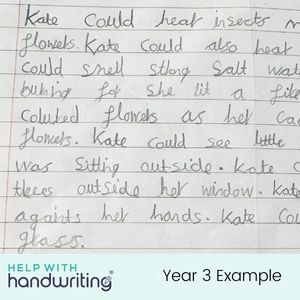 Kate could hear insects
flowers. Kate could also hear
could smell strong salt wat
burning for she lit a fire
coloured flowers as her ca
flowers. Kate could see little
was sitting outside. Kate c
trees outside her window. Kate
againts her hands. Kate cou
glass.
HELP WITH
handwriting
Year 3 Example